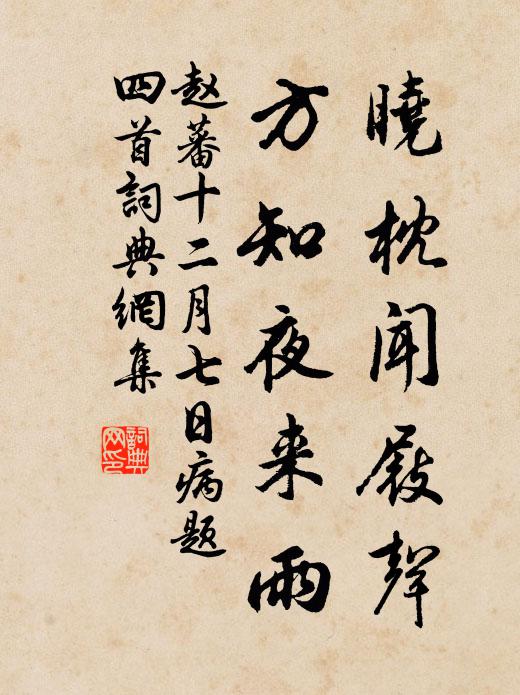 曉枕聞屐聲
方知夜来雨
赵蕃十二月七日病题
四首詞典網集
詞典
网印